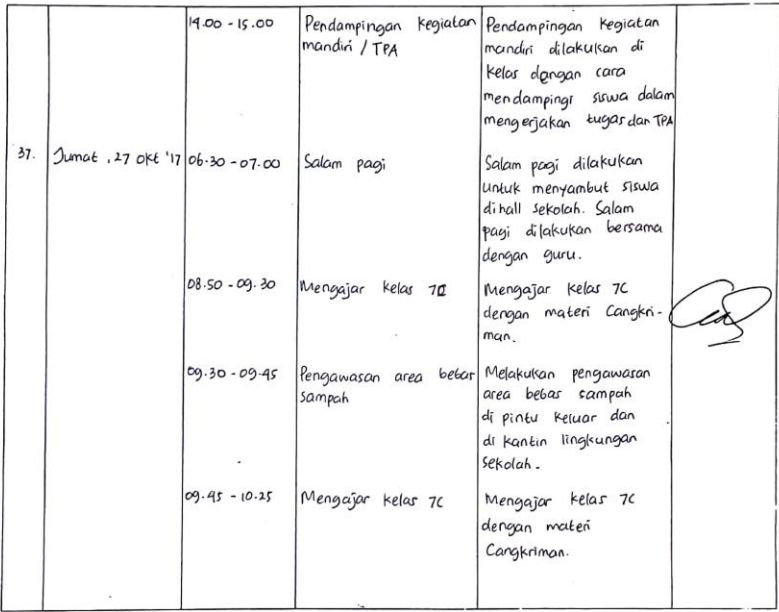 14.00 - 15.00
Pendampingan kegiatan
mandiri / TPA
Pendampingan kegiatan
mandiri dilakukan di
kelas dengan cara
mendampingi siswa dalam
mengerjakan tugas dan TPA
37.
Jumat, 27 Okt '17
06.30 - 07.00
Salam pagi
Salam pagi dilakukan
untuk menyambut siswa
di hall sekolah. Salam
pagi dilakukan bersama
dengan guru.
08.50 - 09.30
Mengajar kelas 7C
Mengajar kelas 7C
dengan materi Cangkri-
man.
09.30 - 09.45
Pengawasan area bebas
sampah
Melakukan pengawasan
area bebas sampah
di pintu keluar dan
di kantin lingkungan
sekolah.
09.45 - 10.25
Mengajar kelas 7C
Mengajar kelas 7C
dengan materi
Cangkriman.